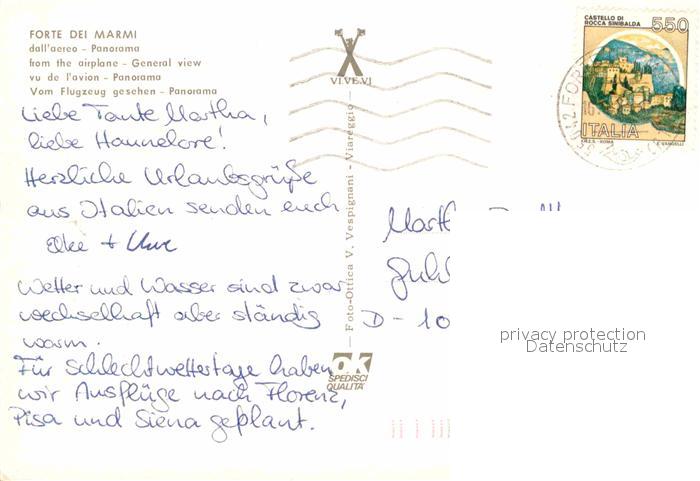 FORTE DEI MARMI
dall'aereo - Panorama
from the airplane - General view
vu de l'avion - Panorama
Vom Flugzeug gesehen - Panorama
Liebe Tante Martha,
liebe Hannelore!
Herzliche Urlaubsgrüße
aus Italien senden euch
Elke + Uwe
Wetter und Wasser sind zwar
wechselhaft aber ständig
warm.
Für Schlechtwettertage haben
wir Ausflüge nach Florenz,
Pisa und Siena geplant.
VI.VE.VI
Foto-Ottica V. Vespignani - Viareggio
OK
SPEDISCI
QUALITÀ
CASTELLO DI
ROCCA SINIBALDA
550
ITALIA
I.P.Z.S. - ROMA
E. VANGELLI
D-10
privacy protection
Datenschutz